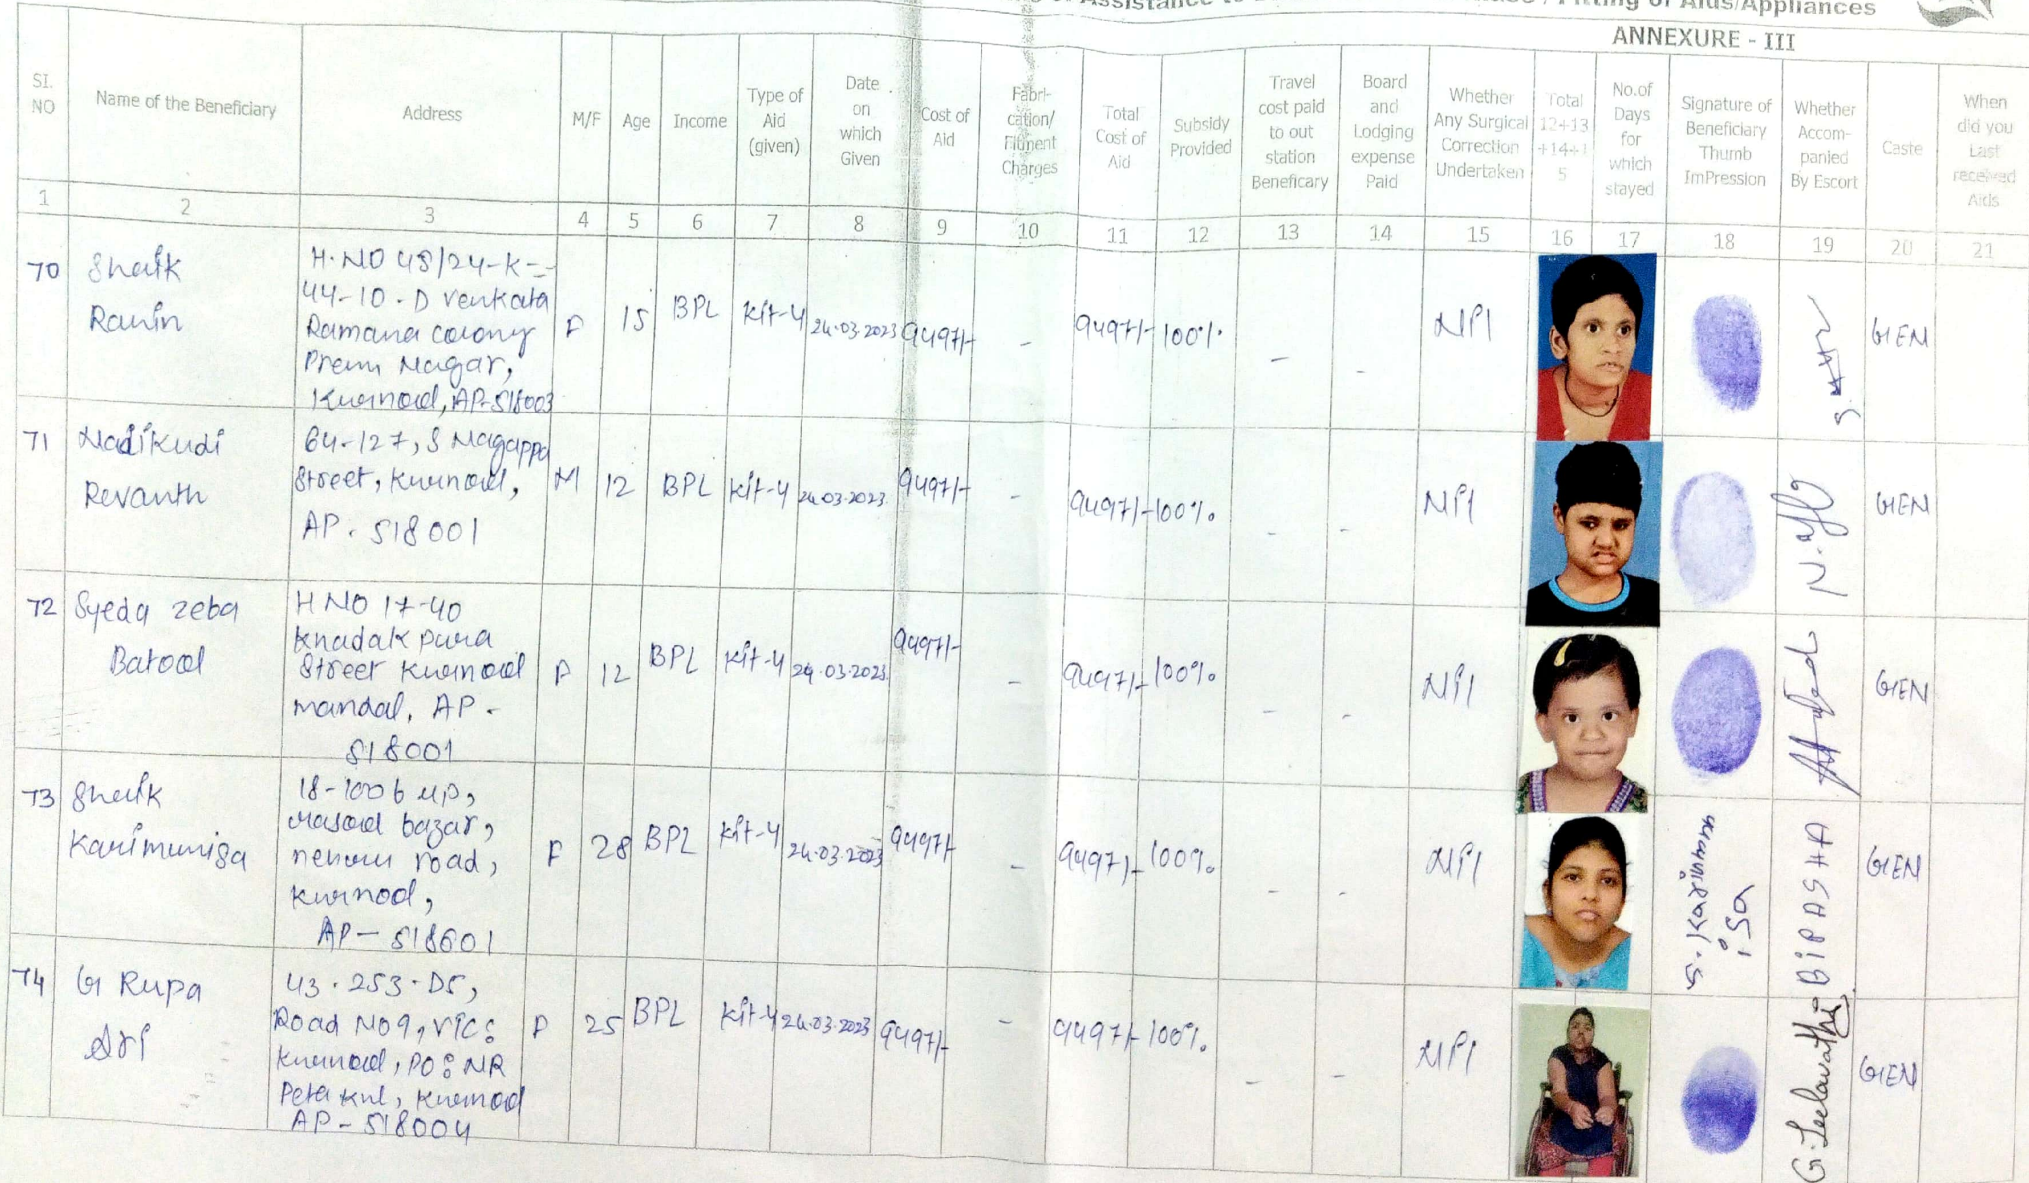 of Assistance to
Fitting of Aids/Appliances
ANNEXURE - III
SI. NO
Name of the Beneficiary
Address
M/F
Age
Income
Type of Aid (given)
Date on which Given
Cost of Aid
Fabri-cation/ Fitment Charges
Total Cost of Aid
Subsidy Provided
Travel cost paid to out station Beneficary
Board and Lodging expense Paid
Whether Any Surgical Correction Undertaken
Total 12+13 +14+1 5
No.of Days for which stayed
Signature of Beneficiary Thumb ImPression
Whether Accom-panied By Escort
Caste
When did you Last received Aids
1 2 3 4 5 6 7 8 9 10 11 12 13 14 15 16 17 18 19 20 21
70 Shaik
H.NO 48/24-K-
44-10-D Venkata
Ramana colony
Prem Nagar,
Kurnool, AP-518003
F 15 BPL Kit-4 24.03.2023 9497/- - 9497/- 100% - - Nil GEN
71 Nadikudi
Revanth
64-127, S Nagappa
Street, Kurnool,
AP. 518001
M 12 BPL Kit-4 24.03.2023 9497/- - 9497/- 100% - - Nil GEN
72 Syeda Zeba
Batool
H NO 17-40
Khadak pura
Street Kurnool
mandal, AP -
518001
F 12 BPL Kit-4 24.03.2023 9497/- - 9497/- 100% - - Nil GEN
73 Shaik
Karimunisa
18-100 b up,
bazar,
nehru road,
Kurnool,
AP- 518001
F 28 BPL Kit-4 24.03.2023 9497/- - 9497/- 100% - - Nil S. Karimun isa BiPASHA GEN
74 G Rupa
Sri
43-253-D5,
Road No 9, VTC:
Kurnool, PO: NR
Peta Knl, Kurnool
AP-518004
F 25 BPL Kit-4 24.03.2023 9497/- - 9497/- 100% - - Nil G. Leelavathi GEN